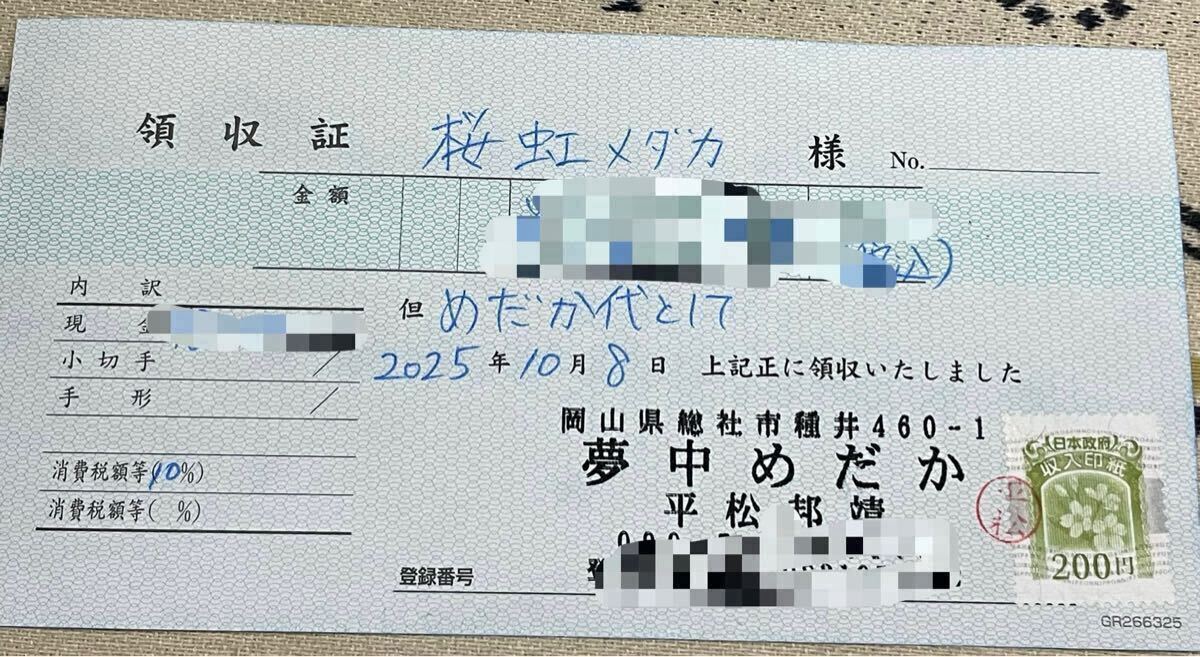 領収証 桜虹メダカ 様 No.
金額
税込)
内訳
現金
小切手
手形
消費税額等(10%)
消費税額等( %)
但 めだか代として
2025年10月8日 上記正に領収いたしました
岡山県総社市種井460-1
夢中めだか
平松邦靖
登録番号
日本政府
収入印紙
200円
平松
GR266325